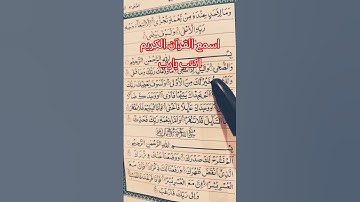 وَمَا لِأَحَدٍ عِندَهُ مِن نِّعْمَةٍ تُجْزَى إِلَّا ابْتِغَاءَ وَجْهِ
رَبِّهِ الْأَعْلَى وَلَسَوْفَ يَرْضَى
اسمع القرآن الكريم
اكتب يارب
الله الرَّحْمَنِ الرَّحِيمِ
وَالضُّحَى وَاللَّيْلِ إِذَا رَبُّكَ وَمَا
خَيْرٌ لَّكَ مِنَ الْأُولَى وَلَسَوْفَ
أَلَمْ يَجِدْكَ يَتِيمًا فَآوَى وَوَجَدَكَ ضَا
عَائِلًا فَأَغْنَى فَأَمَّا الْيَتِيمَ
السَّائِلَ فَلَا تَنْهَرْ وَأَمَّا بِنِعْمَةِ رَبِّكَ فَحَدِّثْ
الله الرَّحْمَنِ الرَّحِيمِ
أَلَمْ نَشْرَحْ لَكَ صَدْرَكَ وَوَضَعْنَا عَنكَ وِزْرَكَ
الَّذِي أَنقَضَ ظَهْرَكَ وَرَفَعْنَا لَكَ ذِكْرَكَ فَإِنَّ مَعَ
الْعُسْرِ يُسْرًا إِنَّ مَعَ الْعُسْرِ يُسْرًا فَإِذَا فَرَغْتَ فَانصَبْ
وَإِلَى رَبِّكَ فَارْغَب